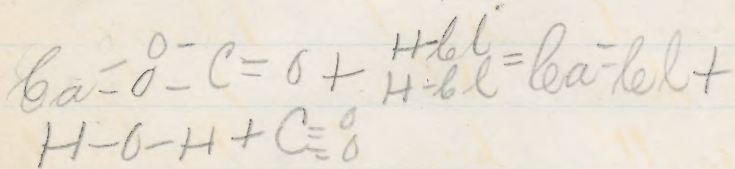 Ca=O O-C=O+ H-Cl H-Cl=Ca=Cl+
H-O-H+C≡O O